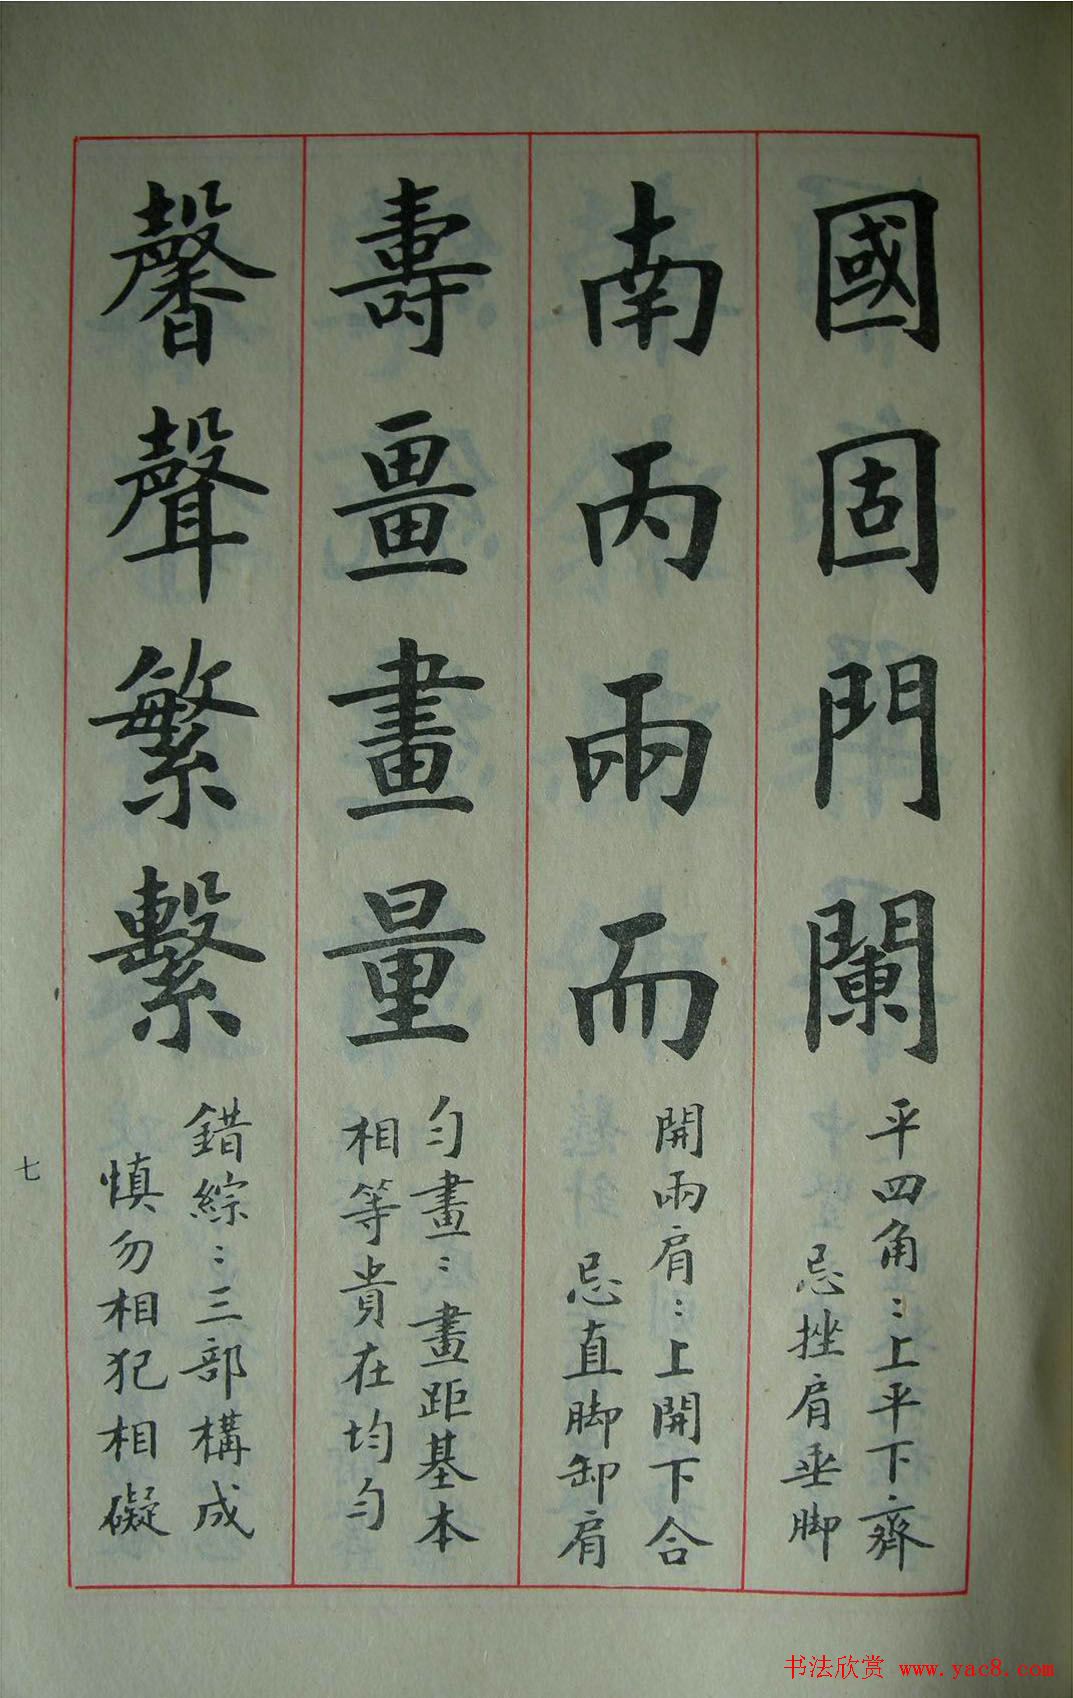 國固門闌
平四角：上平下齊
忌挫肩垂脚
南丙雨而
開兩肩：上開下合
忌直脚卸肩
壽畺畫量
勻畫：畫距基本
相等貴在均勻
馨聲繁繫
錯綜：三部構成
慎勿相犯相礙
七
书法欣赏 www.yac8.com